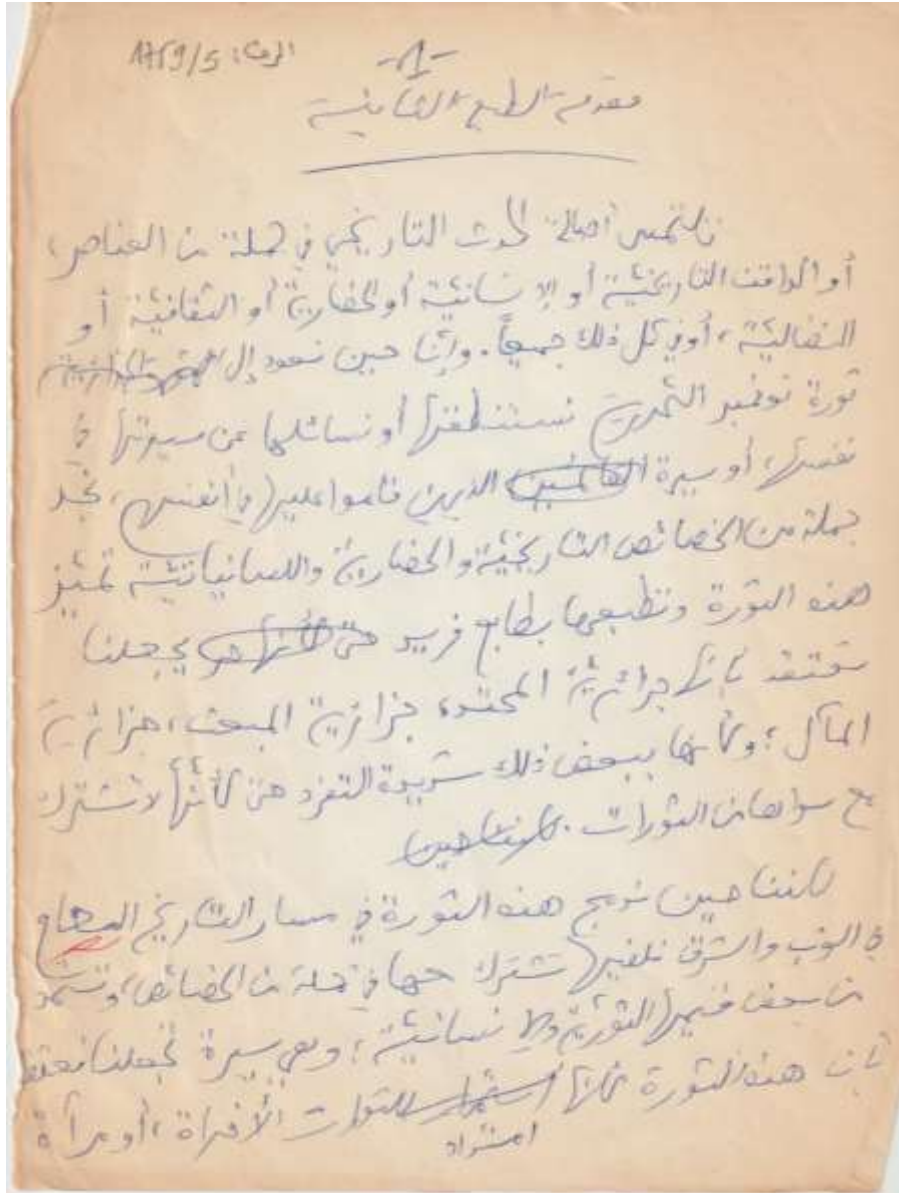 الرقم: 1759/5
-1-
مقدمة الطبعة الثانية
نلتمس أصالة الحدث التاريخي في جملة من العناصر،
أو المواقف التاريخيّة أو الإنسانيّة أو الحضاريّة أو الثقافيّة أو
النضاليّة، أو في كل ذلك جميعاً. وإنّنا حين نعود إلى
ثورة نوفمبر التحريريّة نستنطقها أو نسائلها عن سيرتها في
نفسها، أو سيرة الذين قاموا عليها في أنفسهم، نجد
جملة من الخصائص التاريخيّة والحضاريّة واللسانياتيّة تميّز
هذه الثورة وتطبعها بطابع فريد حتى يجعلنا
نعتقد بأنها جزائريّة المحتد، جزائريّة المبعث، جزائريّة
المآل؛ وكأنها ببعض ذلك شديدة التفرد حتى كأنّها لا تشترك
مع سواها من الثورات.
لكننا حين ندمج هذه الثورة في مسار التاريخ العام
في الغرب والشرق نلفيها تشترك معها في جملة من الخصائص، وتستمد
من بعض قيمها الثوريّة والإنسانيّة؛ وهي سيرة تجعلنا نعتقد
بأن هذه الثورة كأنها للثورات الأخراة، أو مرآة
امتداد